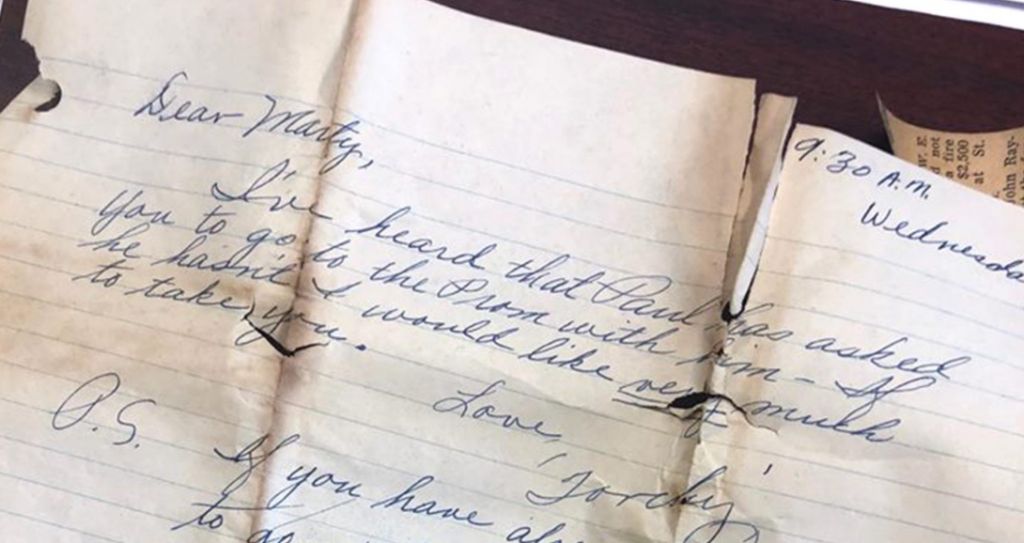 9:30 A.M.
Wednesda
Dear Marty,
I've heard that Paul has asked
you to go to the Prom with him - If
he hasn't I would like very much
to take you.
Love,
'Torchy'
P.S. If you have alr
to go
W. E.
d not
a fire
$2,500
at St.
ohn Ray-